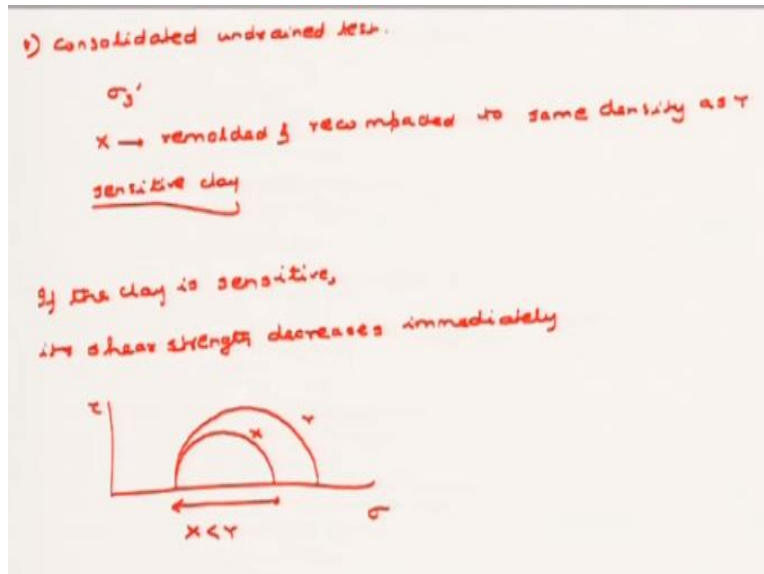 1) Consolidated undrained test.
σ3'
X → remolded & recompacted to same density as Y
sensitive clay
If the clay is sensitive,
its shear strength decreases immediately
τ
X
Y
σ
X < Y